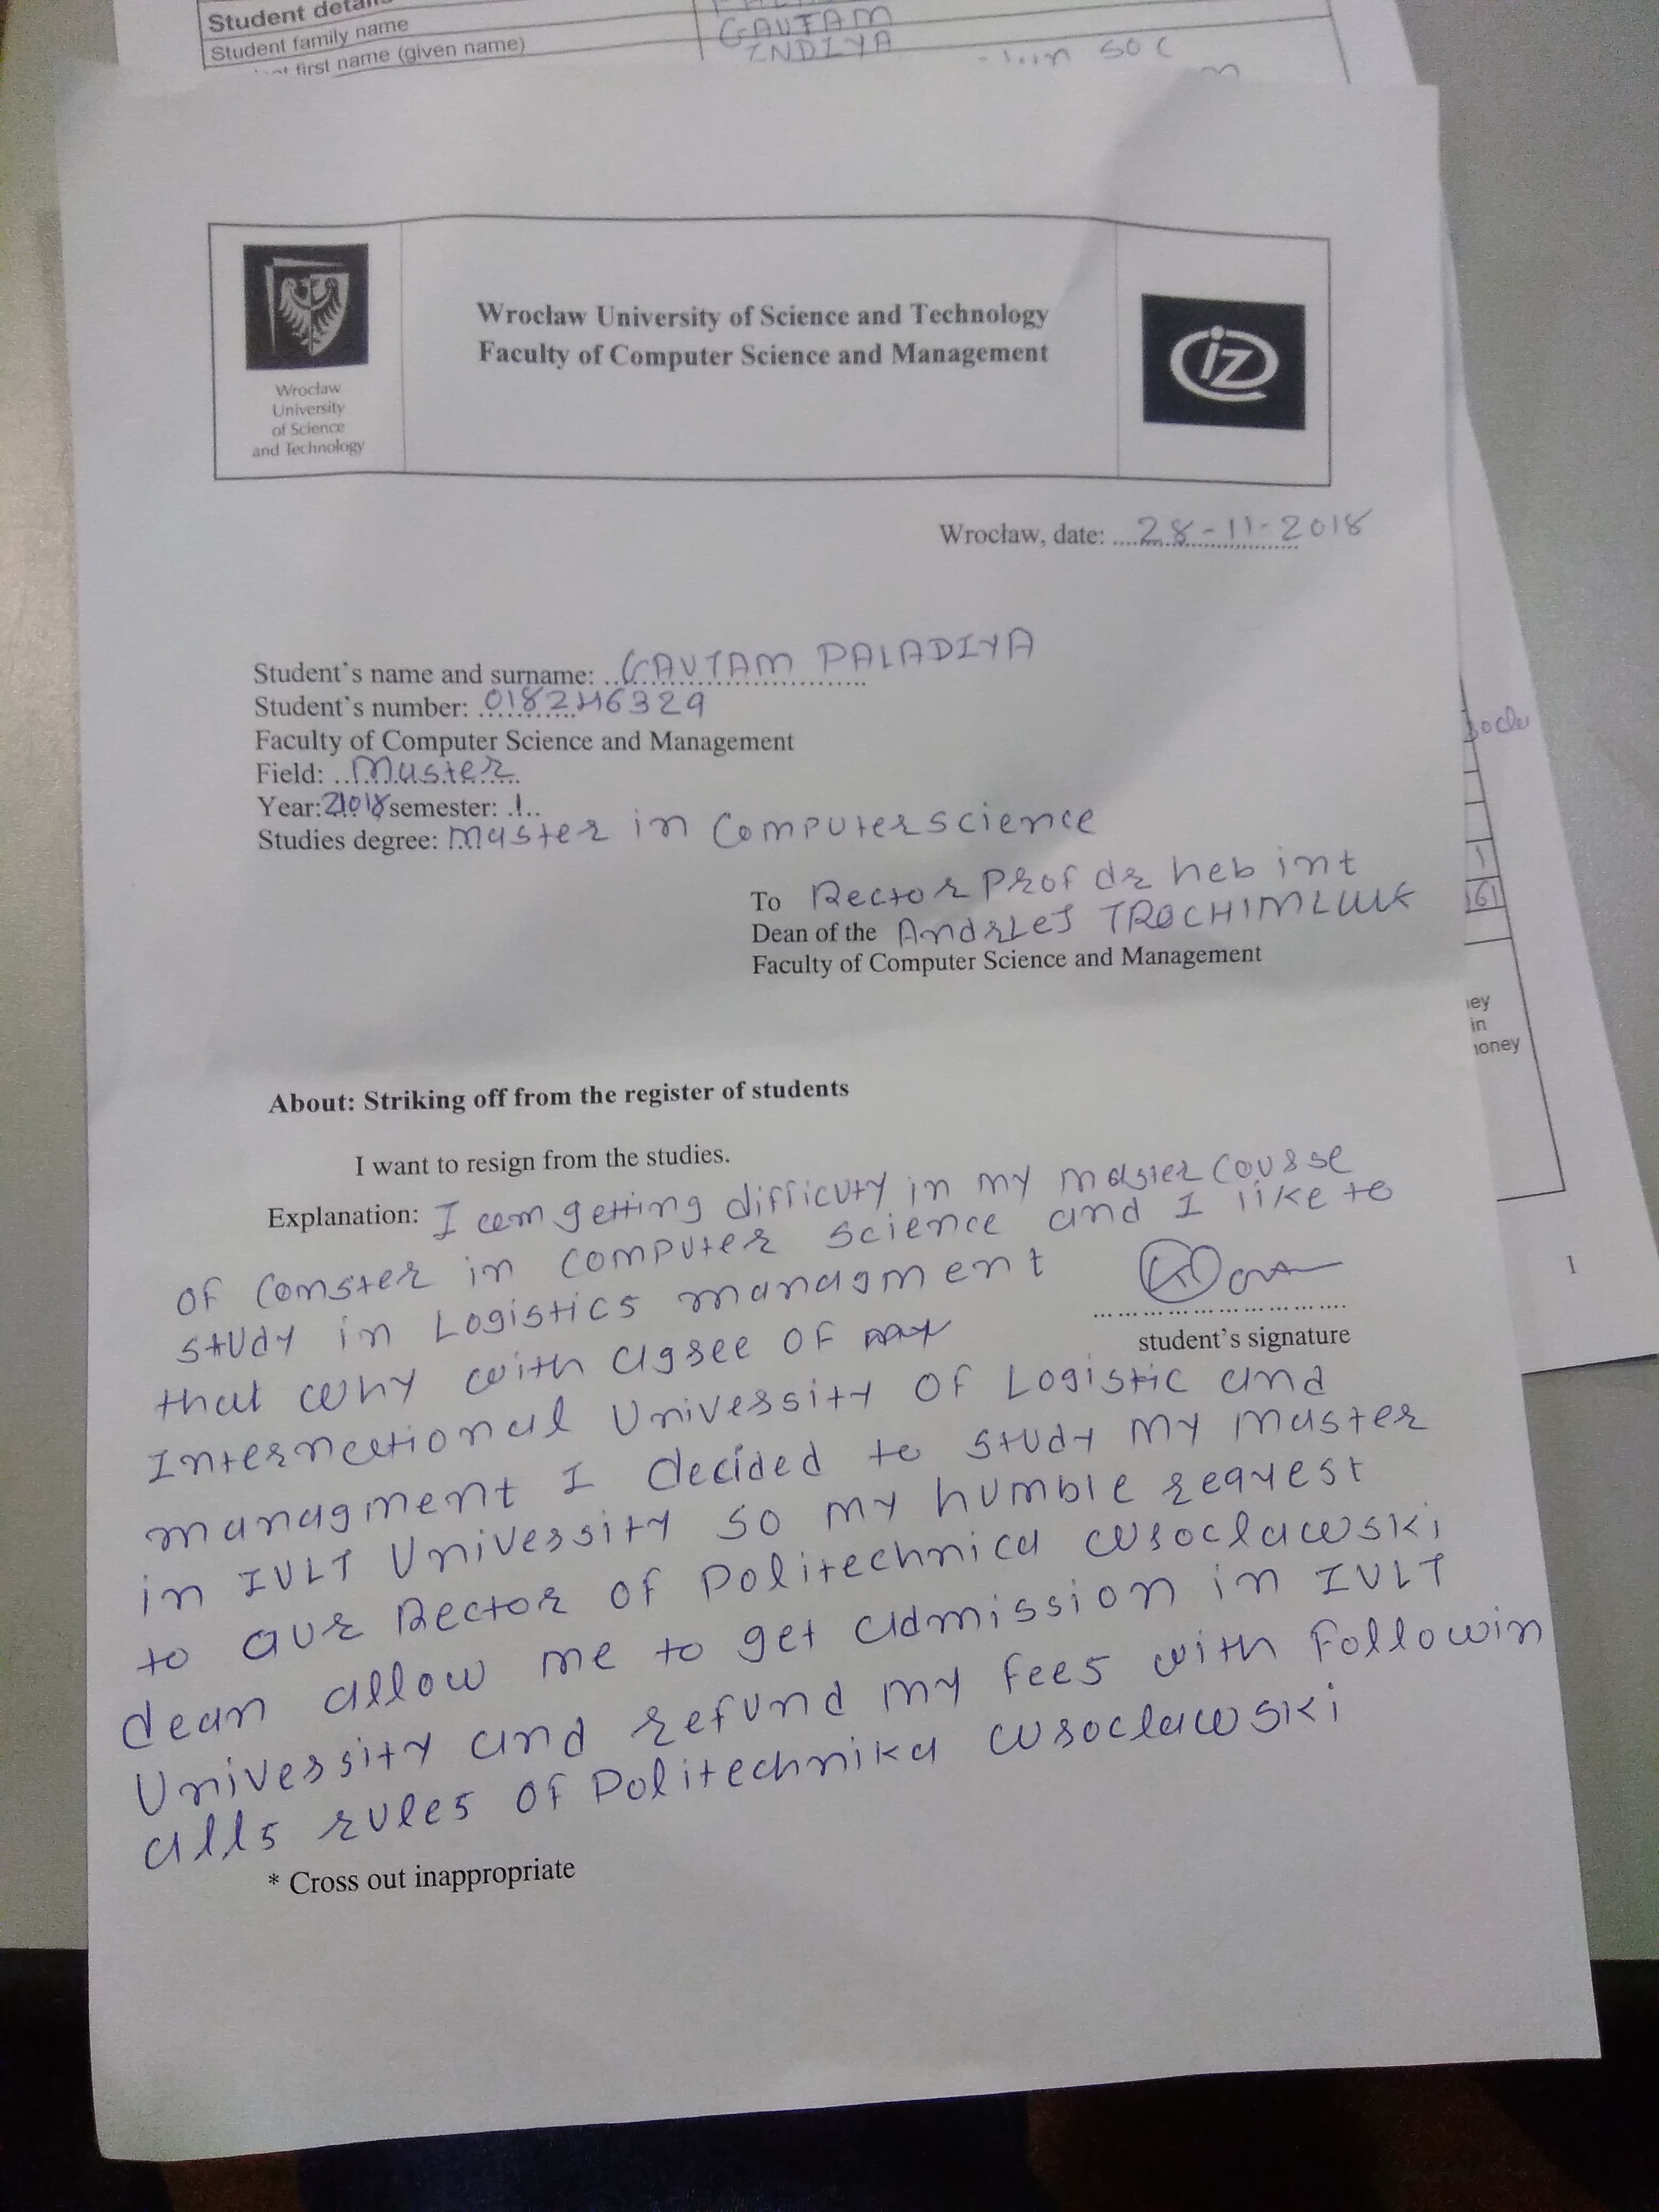 Student details
Student family name
first name (given name)
GAUTAM
INDIYA
Wrocław
University
of Science
and Technology
Wrocław University of Science and Technology
Faculty of Computer Science and Management
iz
Wrocław, date: 28-11-2018
Student's name and surname: GAUTAM PALADIYA
Student's number: 0182246329
Faculty of Computer Science and Management
Field: Master
Year: 2018 semester: 1
Studies degree: Master in Computer science
To Rector Prof dr heb int
Dean of the Andrzej
Faculty of Computer Science and Management
About: Striking off from the register of students
I want to resign from the studies.
Explanation: I am getting difficuty in my master course
of in computer science and I like to
study in Logistics managment
student's signature
that why with agree of
International University of Logistic and
managment I decided to study my master
in IULT University so my humble request
to our Rector of Politechnica wroclawski
dean allow me to get admission in IULT
University and refund my fees with followin
alls rules of Politechnika wroclawski
* Cross out inappropriate
ey
in
oney
161
1